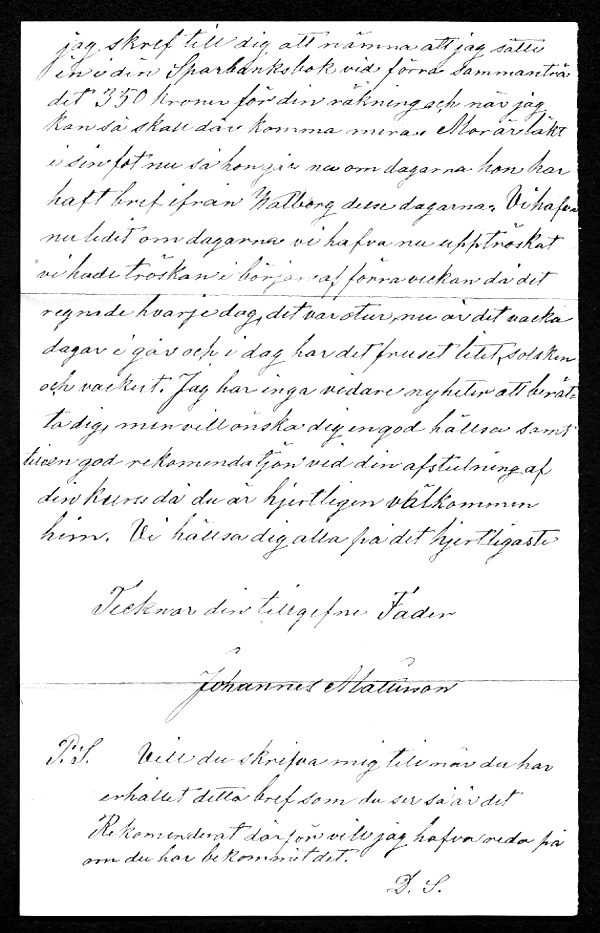 jag skref till dig att nämna att jag sätte
in i din Sparbanksbok vid förra sammanträ
det 350 kroner för din räkning och när jag
kan så skall där komma mera. Mor är läkt
i sin fot nu så hon går nu om dagarna hon har
haft bref ifrån Walborg desse dagarna. Vi hafva
nu ledit om dagarna vi hafva nu upptröskat
vi hade tröskan i början af förra veckan då det
regnade hvarje dag, det var otur, nu är det vackra
dagar i går och i dag har det fruset litet, solsken
och vackert. Jag har inga vidare nyheter att berät-
ta dig, men vill önska dig en god hällsa samt
till en god rekomendatjön vid din afslutning af
din kurss då du är hjertligen välkommen
hem. Vi hällsa dig alla på det hjertligaste
Tecknar din tillgifne Fader
Johannes Matsson
P.S. Vill du skrifva mig till när du har
erhållet detta bref som du ser så är det
Rekomenderat därför vill jag hafva reda på
om du har bekommit det.
D. S.